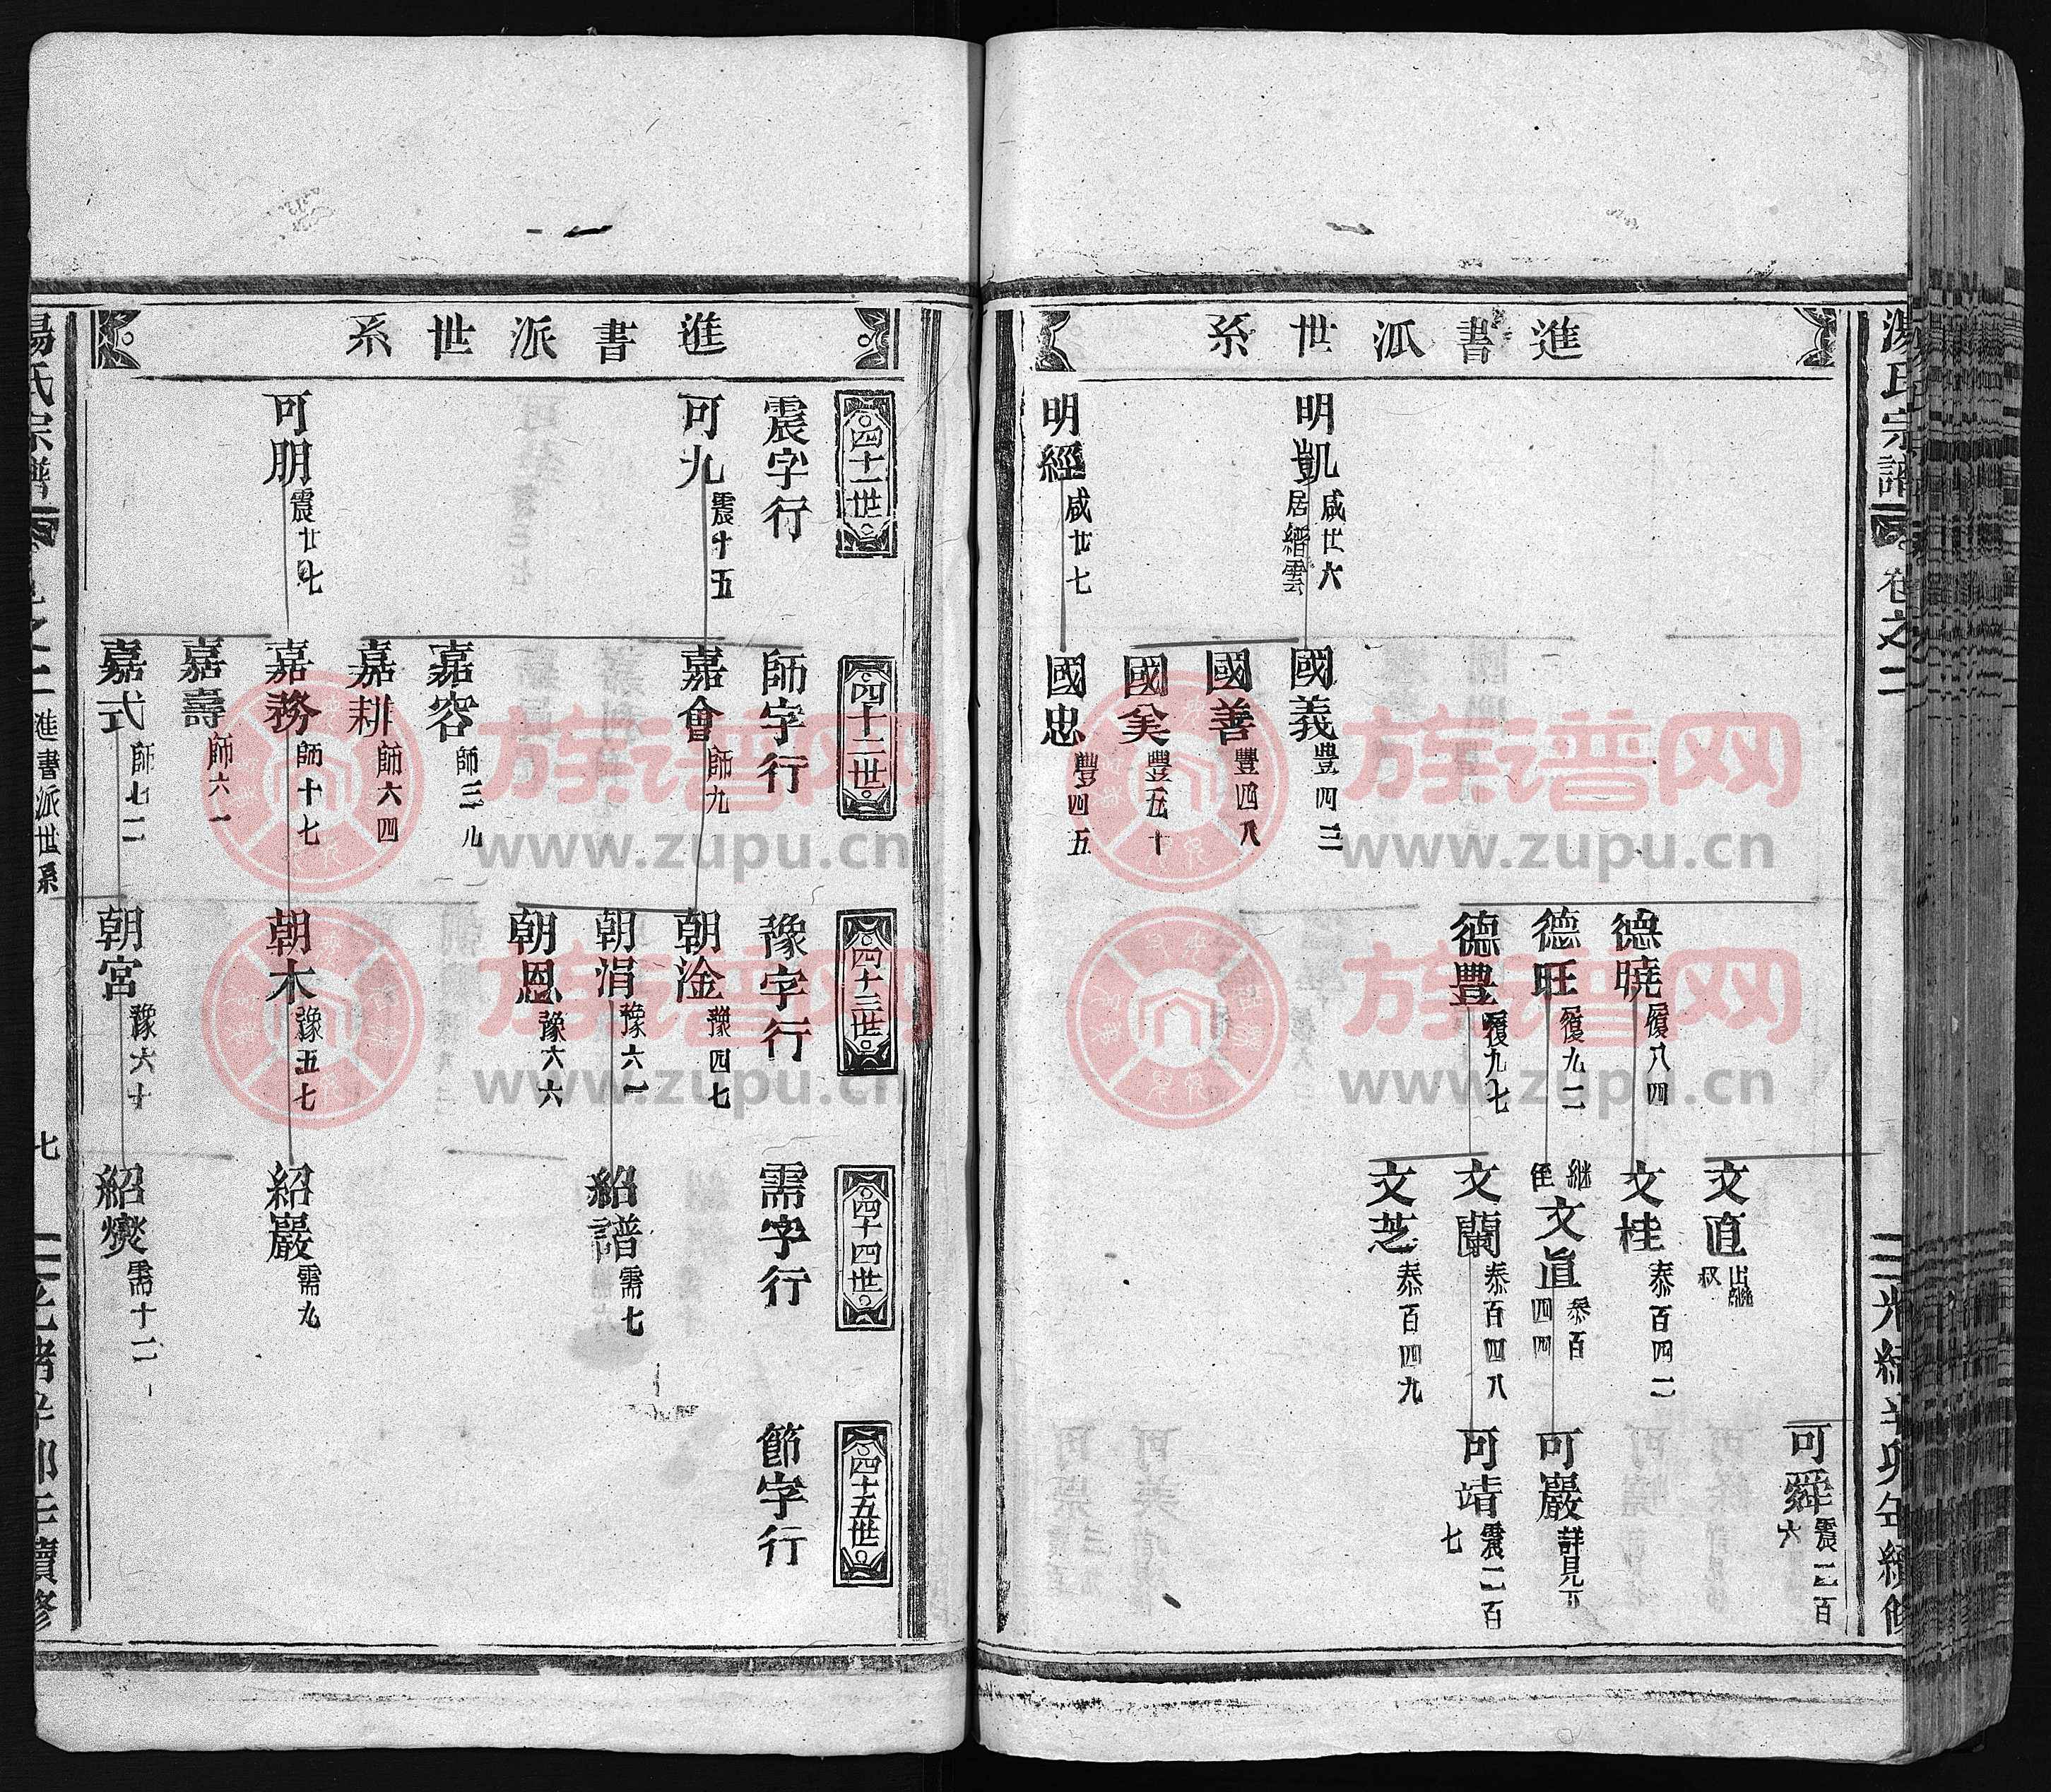 湯氏宗譜
卷之二
光緒辛卯年續修
進書派世系
明凱 咸廿六
居縉雲
明經 咸廿七
國義 豐四三
國善 豐四八
國美 豐五十
國忠 豐四五
德曉 履八四
德旺 履九二
德豐 履九七
文直 出繼
叔
文桂 泰百四二
繼
侄
文直 泰百
四四
文蘭 泰百四八
文芝 泰百四九
可舜 震二百
六
可巖 詳見下
可靖 震二百
七
進書派世系
四十一世
震字行
可九 震十五
可朋 震廿七
四十二世
師字行
嘉會 師九
嘉容 師三九
嘉耕 師六四
嘉務 師十七
嘉壽 師六一
嘉式 師七二
四十三世
豫字行
朝淦 豫四七
朝涓 豫六一
朝恩 豫六六
朝木 豫五七
朝宮 豫六十
四十四世
需字行
紹譜 需七
紹巖 需九
紹爕 需十二
四十五世
節字行
湯氏宗譜
卷之二
進書派世系
七
光緒辛卯年續修
族谱网
www.zupu.cn
族谱网
www.zupu.cn
族谱网
www.zupu.cn
族谱网
www.zupu.cn